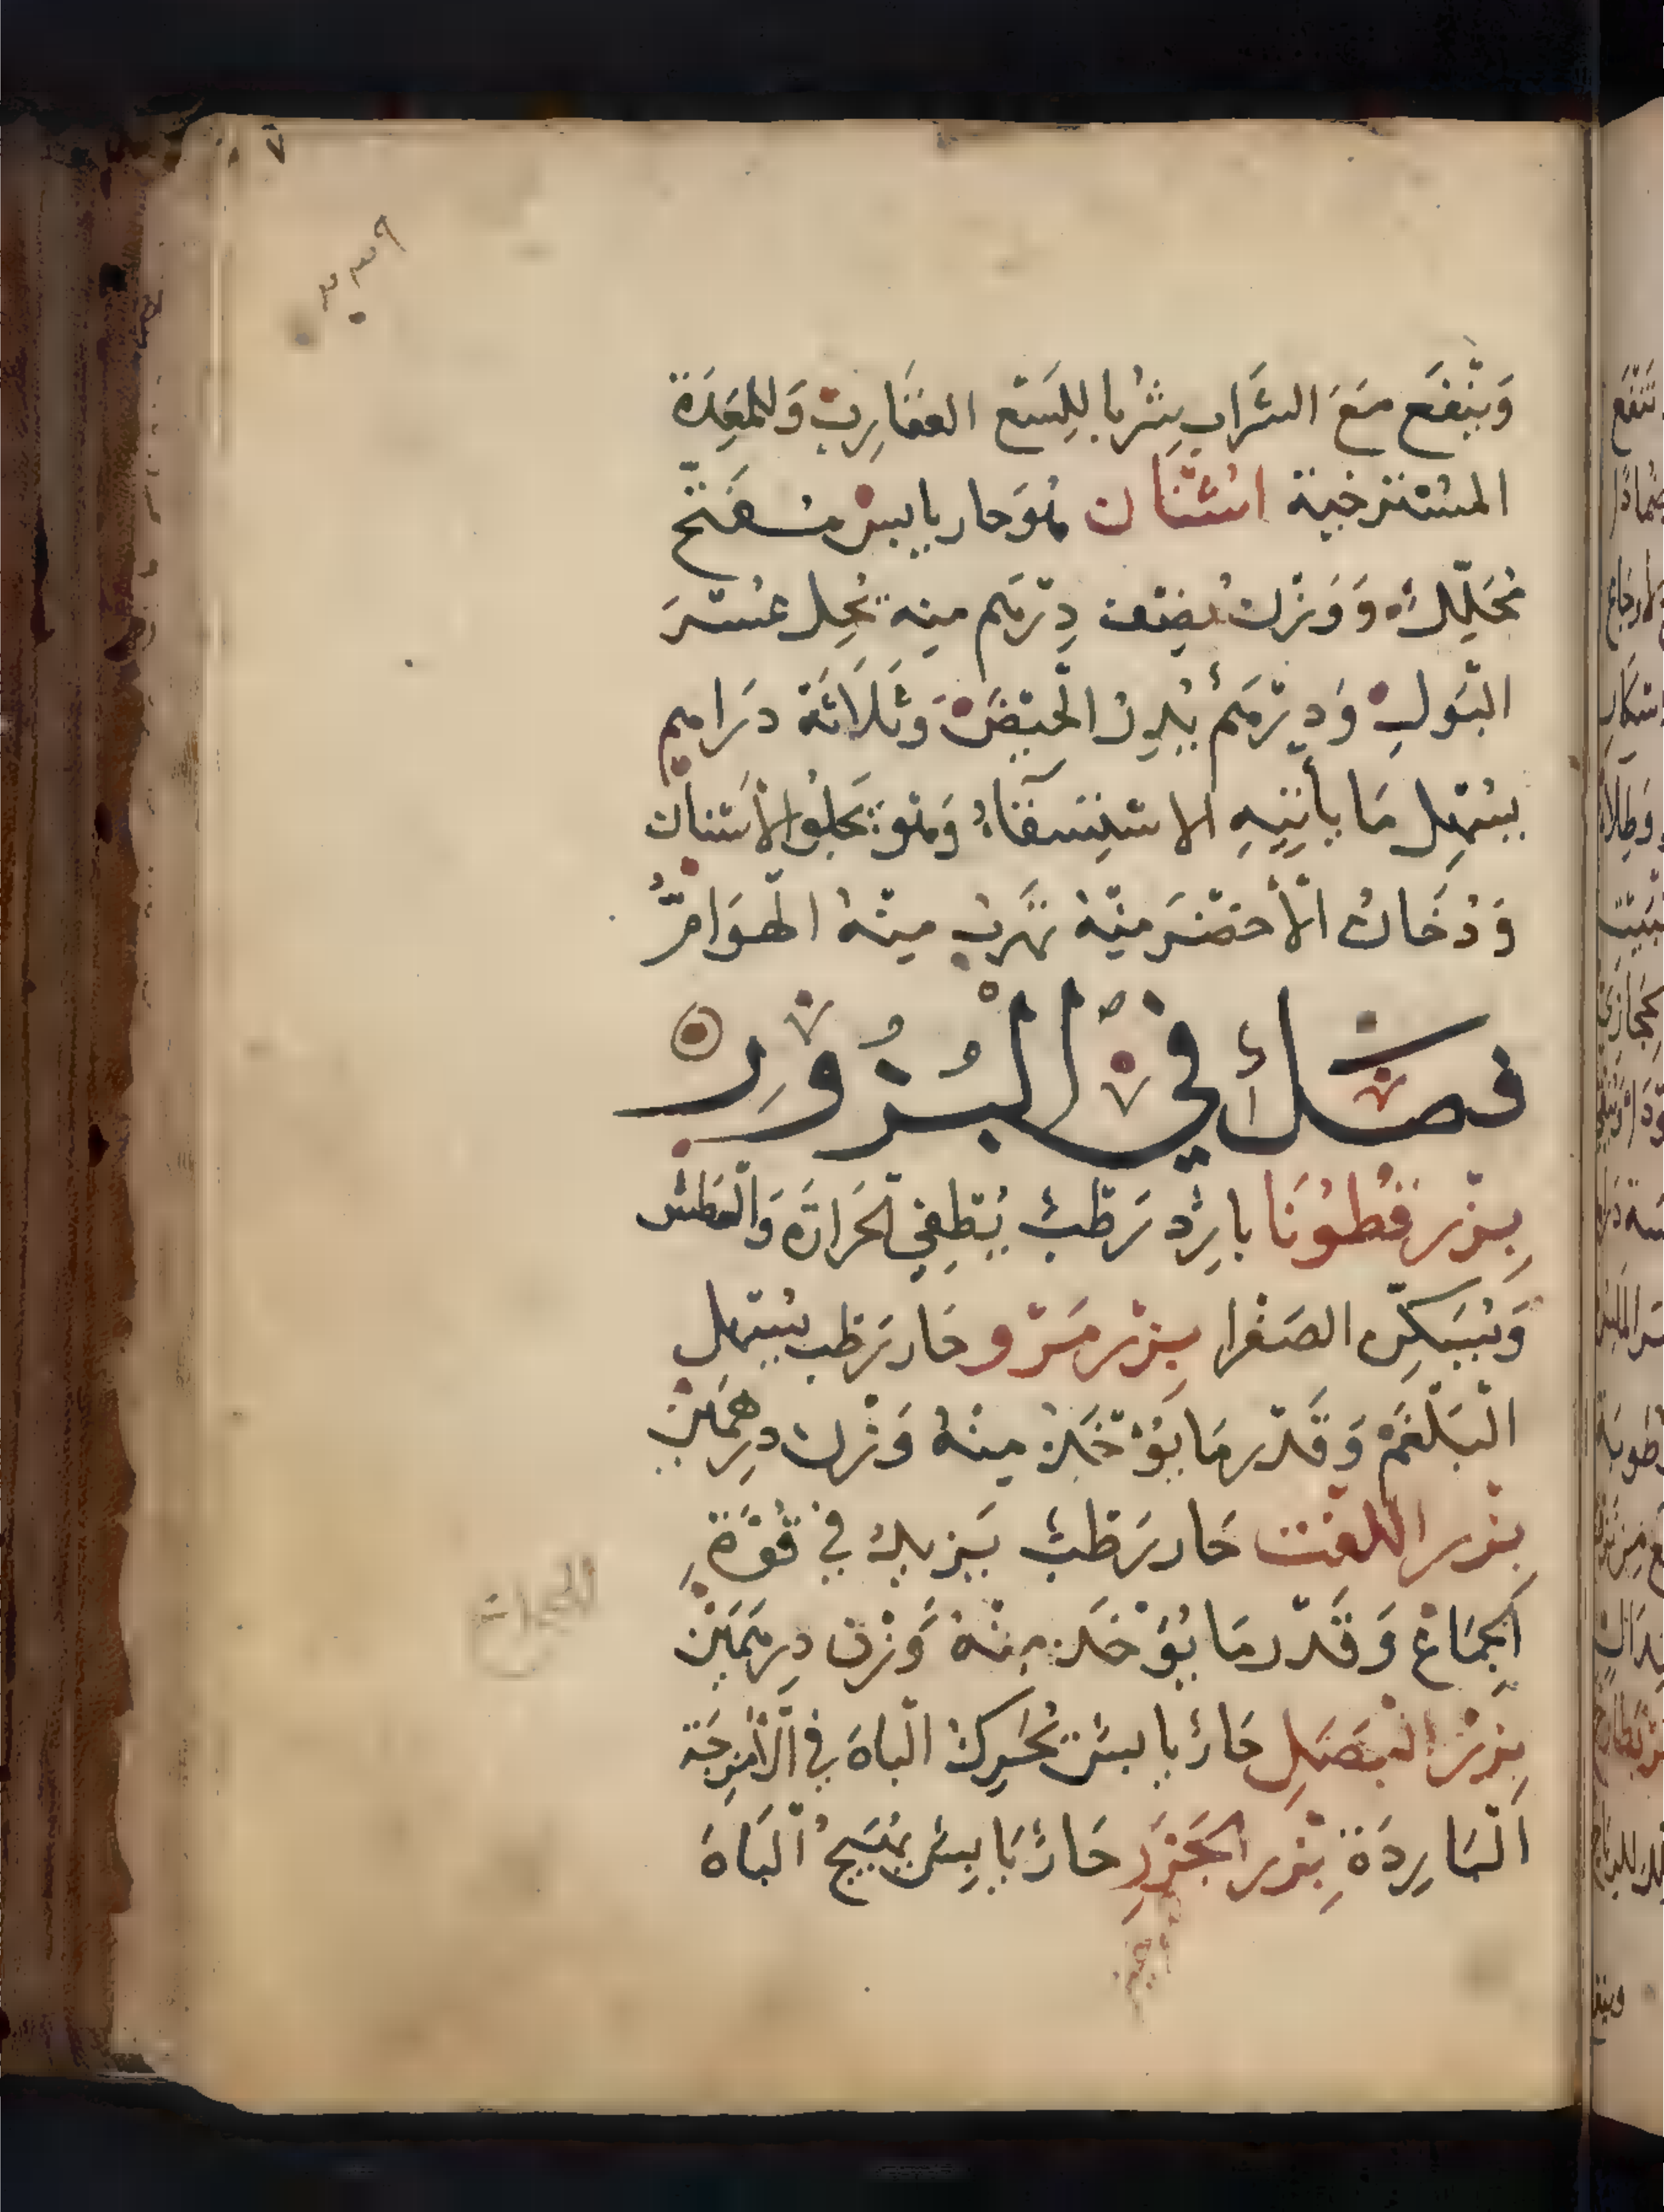 ٧
وَيَنْفَع مَعَ الشَّرَاب شُربا لِلَسْع العَقَارِب وَللمَعِدَة
المسْتَرخية اشْنَان هُوَ حار يابس مُفَتِّح
مُحَلِّل وَوَزْن نِصْف دِرْهَم مِنه يُحِل عُسْرَ
البَولِ وَدِرْهَمْ يُدِرّ الحَيْضَ وَثَلَاثَة دَرَاهِم
يُسْهِل مَا يأتيهِ الاسْتِسْقَاءُ وَهُوَ يَجلُو الأسْنَان
وَدُخَانُ الأخْضَر مِنْهُ يَهْرُب مِنْهُ الهَوَامُّ
فصل في البُزُورِ
بِزْر قُطُونَا بارِد رَطْبٌ يُطْفِي الحَرَارَة وَالعَطَش
وَيُسَكِّن الصَفْرا بِزْر مَرْو حَار رَطب يُسْهل
البَلْغَمْ وَقَدْر مَا يُؤْخَذ مِنْهُ وَزْن دِرهمَين
بِزْر اللفْت حَار رَطْبٌ يَزيد في قُوَّةِ
الجِمَاعْ وَقَدْر مَا يُؤْخَذ مِنْهُ وَزْن دِرهَمَيْن
بِزْر البَصَلِ حَارٌ يابسٌ يُحَرِك البَاهَ في الأَمْزِجَة
البَارِدَة بِزْر الجَزَرِ حَارٌ يَابِسٌ يُهَيِّجُ البَاهَ